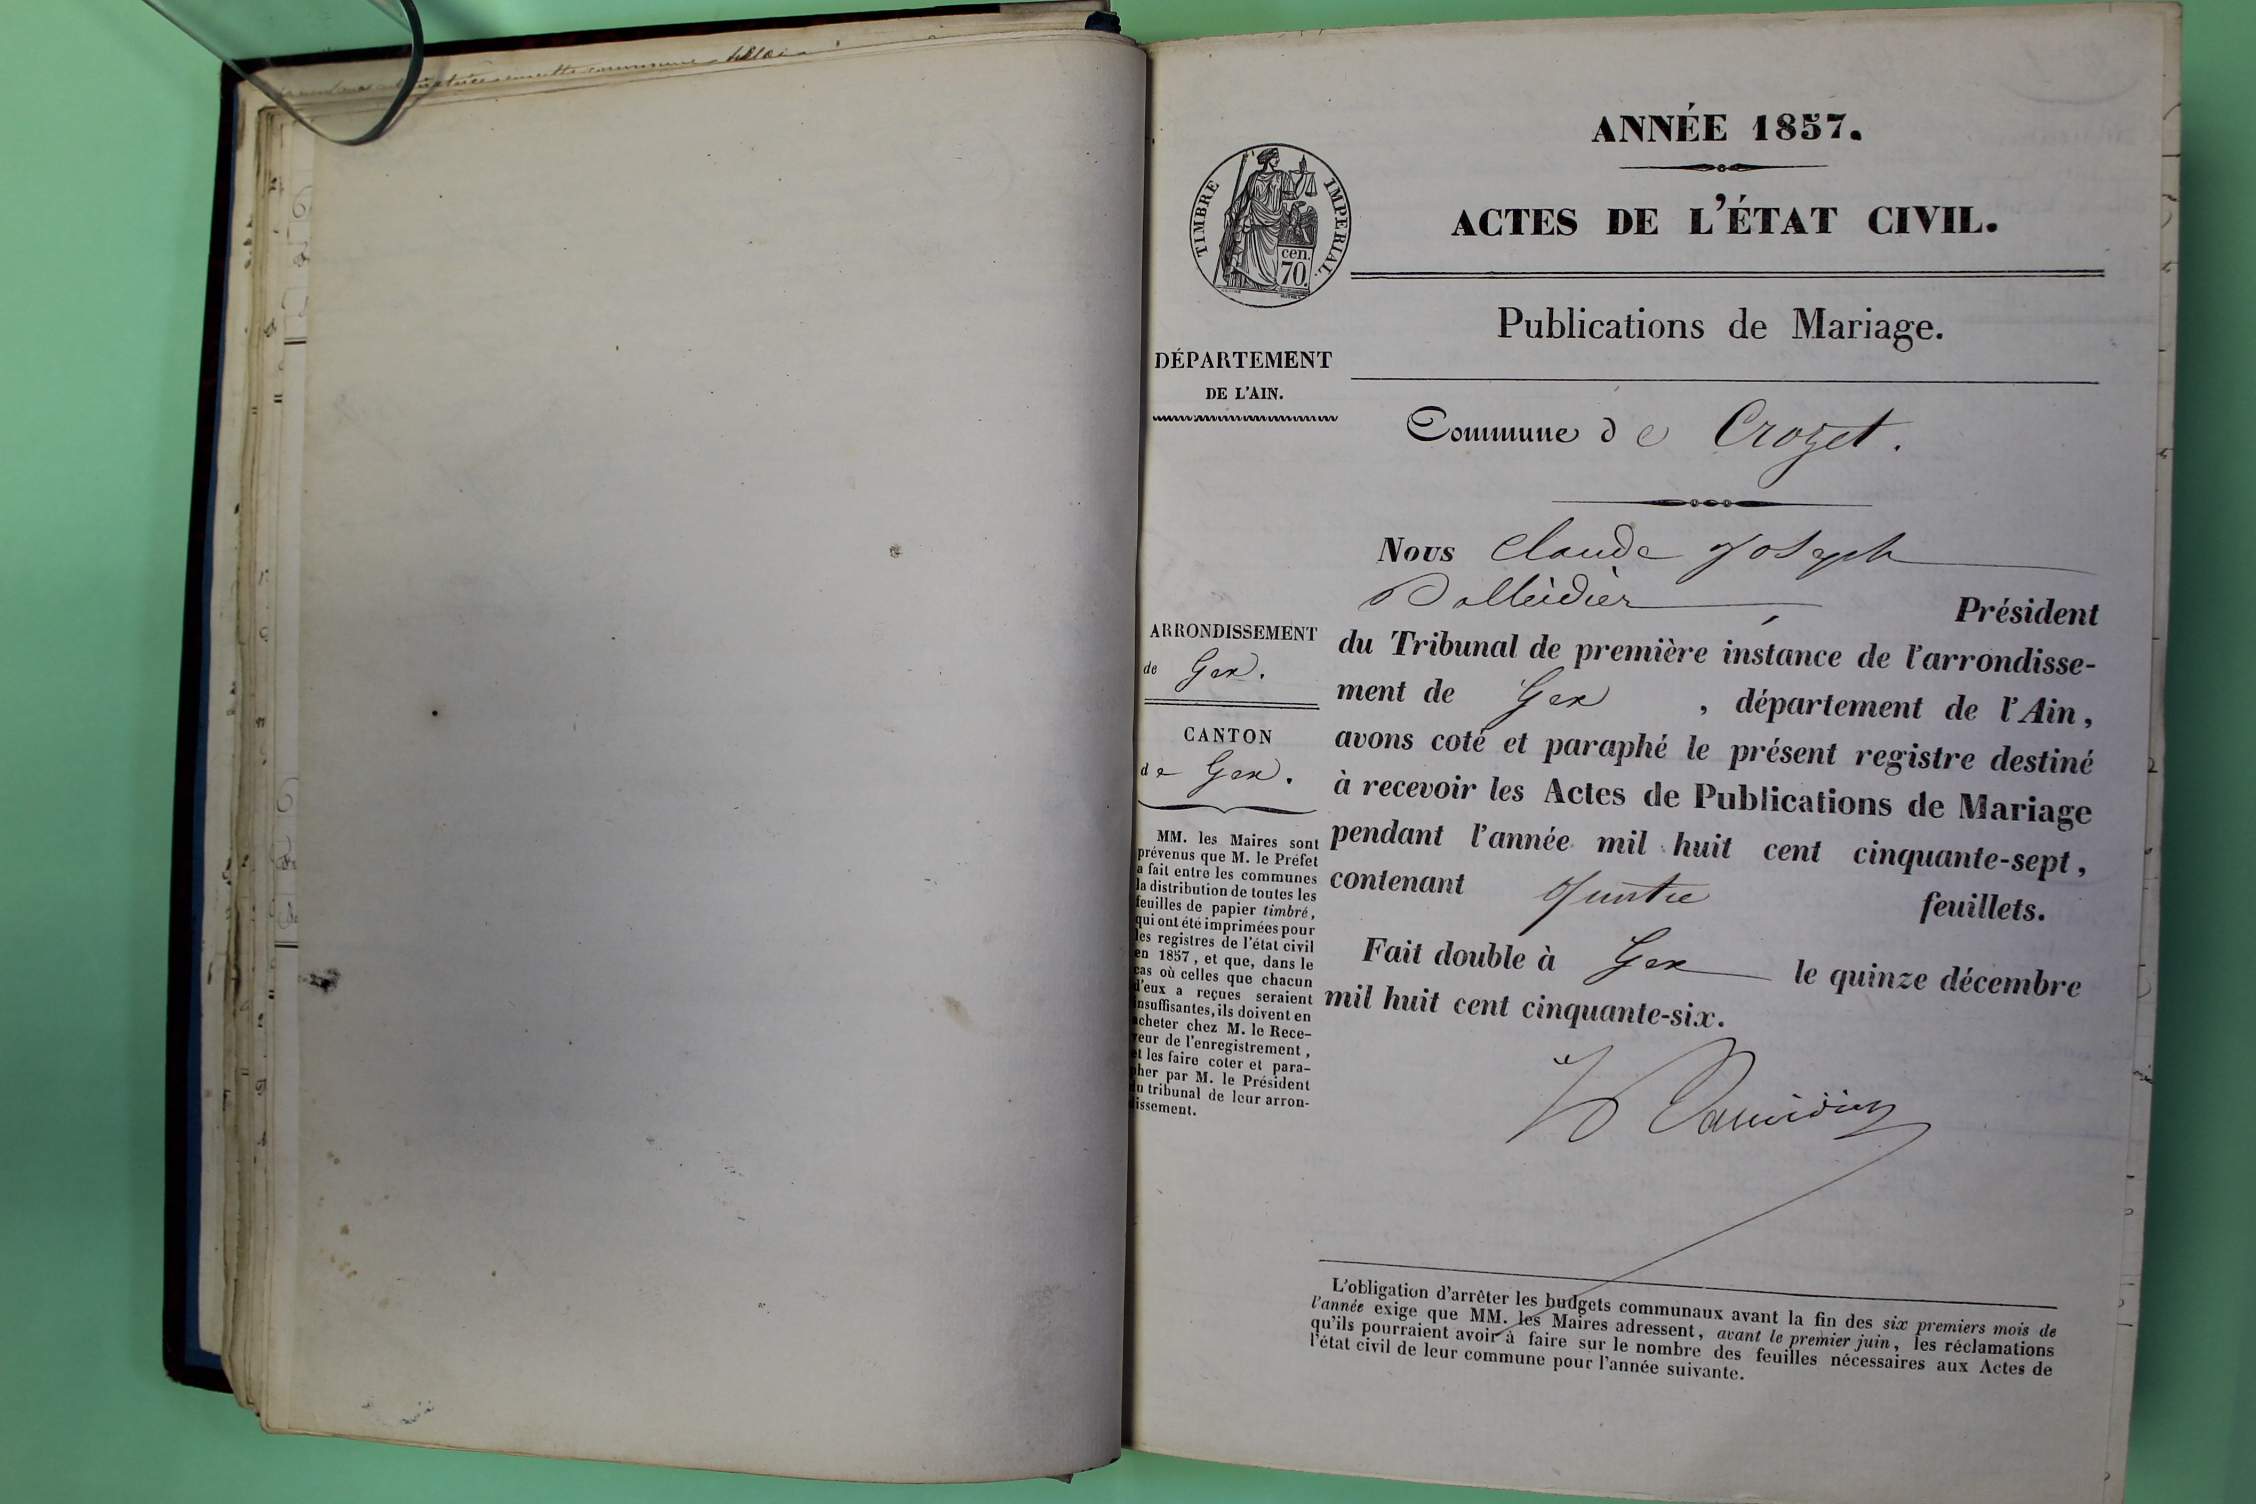 ANNÉE 1857.
ACTES DE L'ÉTAT CIVIL.
TIMBRE IMPERIAL.
cen.
70.
Publications de Mariage.
DÉPARTEMENT
DE L'AIN.
Commune de Crozet.
ARRONDISSEMENT
de Gex.
CANTON
de Gex.
MM. les Maires sont
prévenus que M. le Préfet
a fait entre les communes
la distribution de toutes les
feuilles de papier timbré,
qui ont été imprimées pour
les registres de l'état civil
en 1857, et que, dans le
cas où celles que chacun
d'eux a reçues seraient
insuffisantes, ils doivent en
acheter chez M. le Rece-
veur de l'enregistrement,
et les faire coter et para-
pher par M. le Président
du tribunal de leur arron-
dissement.
Nous Claude Joseph
Président
du Tribunal de première instance de l'arrondisse-
ment de Gex, département de l'Ain,
avons coté et paraphé le présent registre destiné
à recevoir les Actes de Publications de Mariage
pendant l'année mil huit cent cinquante-sept,
contenant feuillets.
Fait double à Gex le quinze décembre
mil huit cent cinquante-six.
L'obligation d'arrêter les budgets communaux avant la fin des six premiers mois de
l'année exige que MM. les Maires adressent, avant le premier juin, les réclamations
qu'ils pourraient avoir à faire sur le nombre des feuilles nécessaires aux Actes de
l'état civil de leur commune pour l'année suivante.